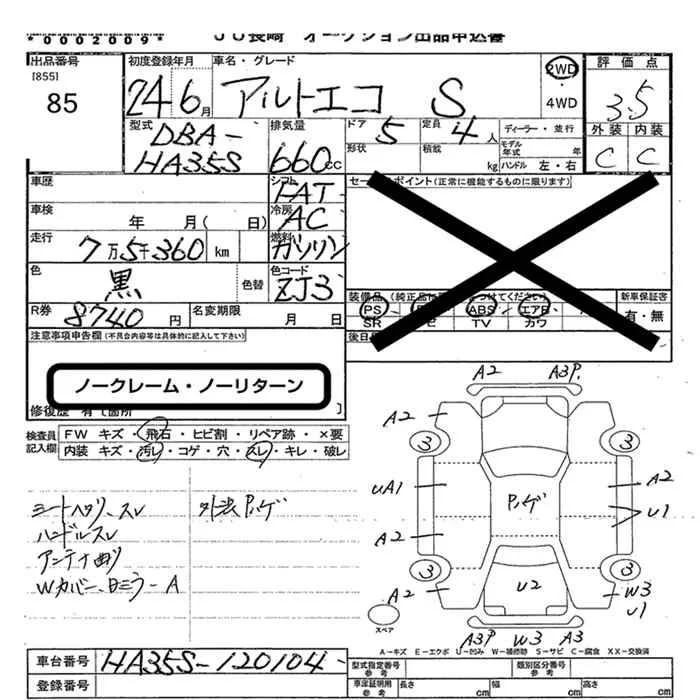 *0002009*
JU長崎 オークション出品申込書
出品番号 初度登録年月 車名・グレード 2WD 評価点
[855]
85 24 6月 アルトエコ S ・4WD 3.5
型式 排気量 ドア 5 定員 4人 ディーラー・並行 外装 内装
DBA- 形状 積載 モデル年式 年 C C
HA35S 660cc kg ハンドル 左・右
車歴 シフト FAT セールスポイント(正常に機能するものに限ります)
車検 年 月( 日) 冷房 AC
走行 7万5千360 km 燃料 ガソリン
色 黒 色替 色コード ZJ3 装備品 新車保証書
R券 8740円 名変期限 月 日 PS ABS エアB 有・無
SR TV カワ
注意事項申告欄(不具合内容等は具体的に記入して下さい) 後日
ノークレーム・ノーリターン
修復歴 有(箇所 )
検査員記入欄 FW キズ・飛石・ヒビ割・リペア跡・×要
内装 キズ・汚レ・コゲ・穴・スレ・キレ・破レ
A2 A3P.
A2
3 3
UA1 ハゲ A2
U1
シートヘタリ、スレ
ハンドルスレ
アンテナ曲り
A2
3 3
A2 U2 W3
U1
スペア
A3P W3 A3
A-キズ E-エクボ U-凹み W-補修跡 S-サビ C-腐食 XX-交換済
車台番号 HA35S-120104- 型式指定番号 参考 類別区分番号 参考
登録番号 車庫証明用 参考 長さ cm 幅 cm 高さ cm